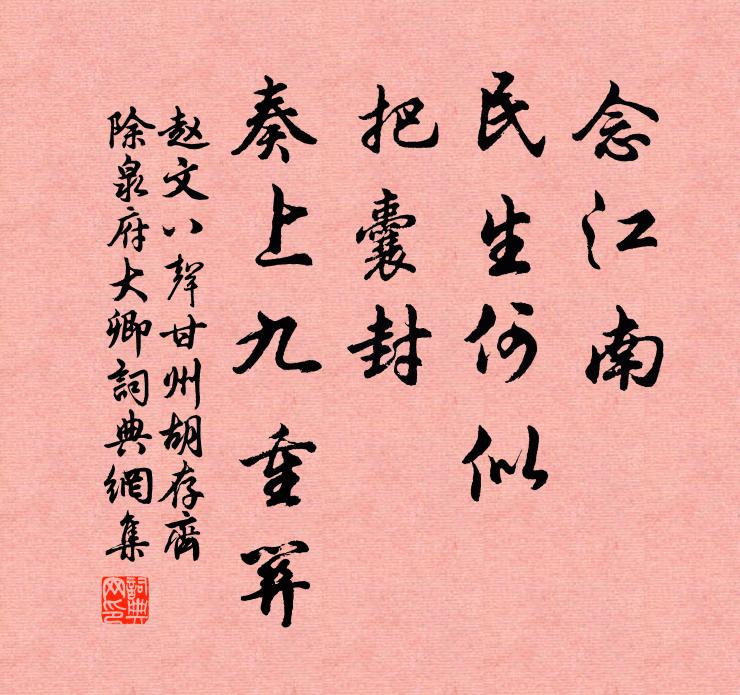 念江南
民生何似
把囊封
奏上九重
赵文八聲甘州胡存齊
除泉府大卿詞典網集
詞典
网印